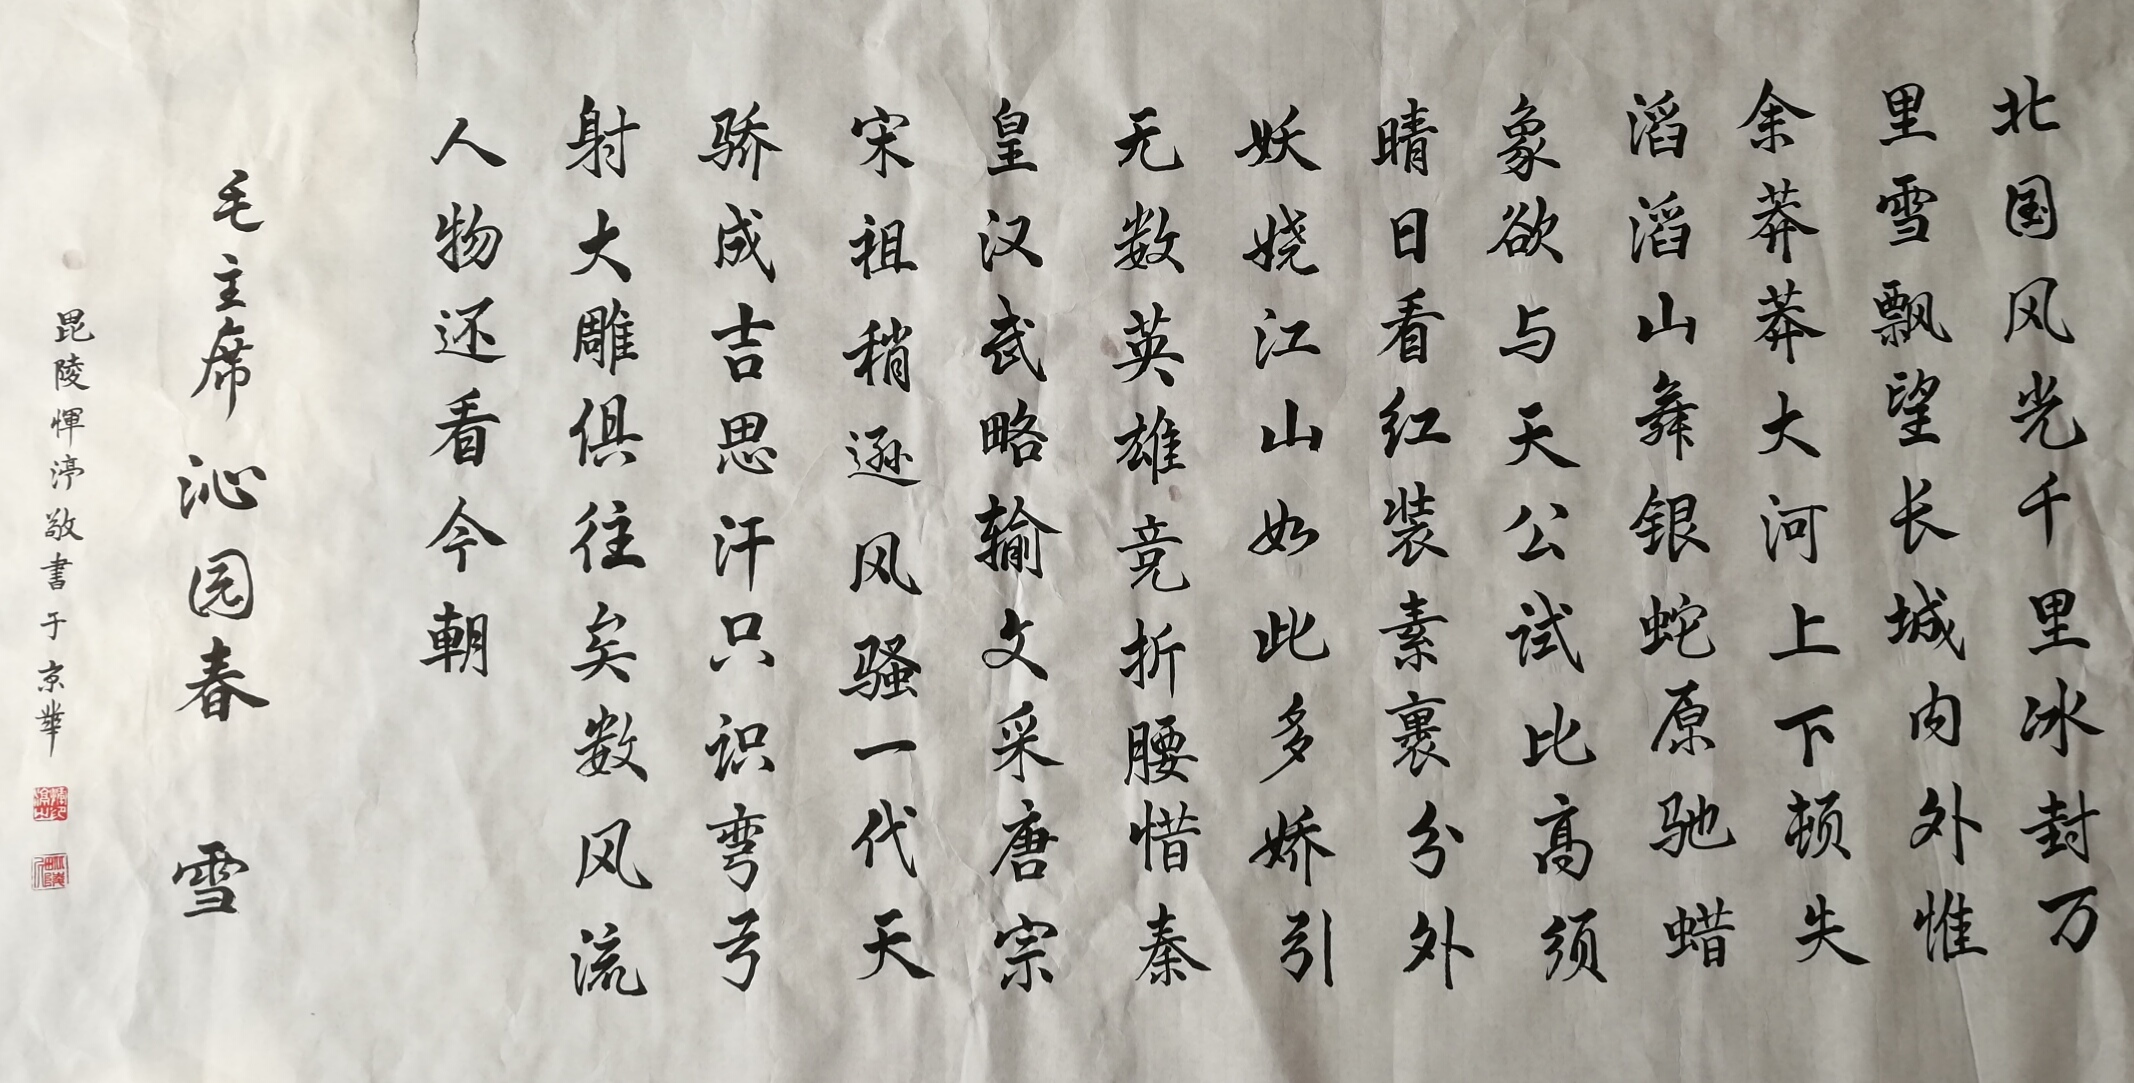 北国风光千里冰封万
里雪飘望长城内外惟
余莽莽大河上下顿失
滔滔山舞银蛇原驰蜡
象欲与天公试比高须
晴日看红装素裹分外
妖娆江山如此多娇引
无数英雄竞折腰惜秦
皇汉武略输文采唐宗
宋祖稍逊风骚一代天
骄成吉思汗只识弯弓
射大雕俱往矣数风流
人物还看今朝
毛主席沁园春 雪
毘陵恽渟敬書于京華